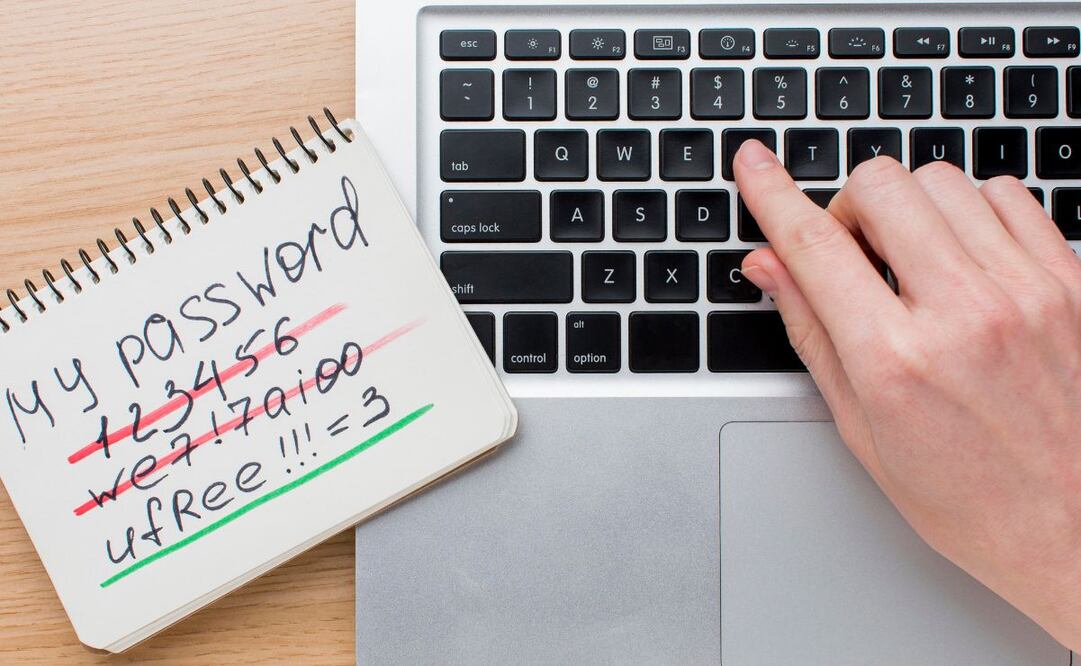 My passWord
123456
we7!7aioo
ufRee!!!=3
esc F1 F2 F3 F4 F5 F6 F7 F8 F9
~ ` ! 1 @ 2 # 3 $ 4 % 5 ^ 6 & 7 * 8 ( 9
tab Q W E T Y U I O
caps lock A S D L
shift Z X C
control alt option